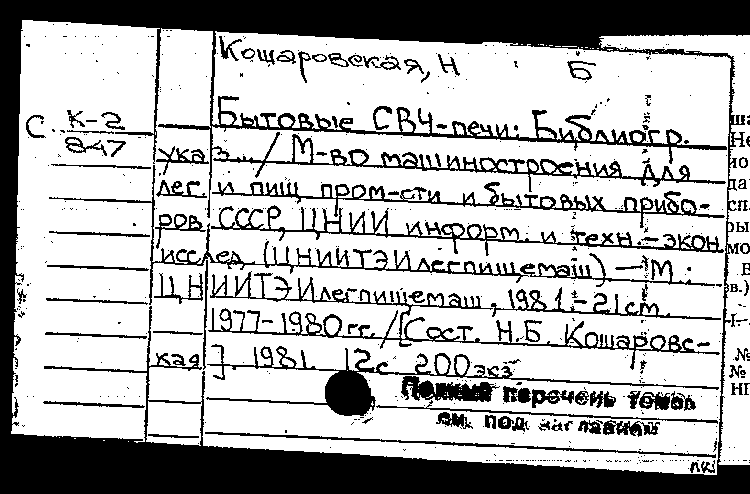 Кошаровская, Н Б
С К-2
847
Бытовые СВЧ-печи: Библиогр.
указ... / М-во машиностроения для
лег. и пищ пром-сти и бытовых прибо-
ров СССР, ЦНИИ информ. и техн.-экон
исслед (ЦНИИТЭИлегпищемаш) — М.:
ЦНИИТЭИлегпищемаш, 1981.-21см.
1977-1980гг. /[Сост. Н.Б. Кошаровс-
кая]. 1981. 12с 200экз
Полный перечень томов
см. под заглавием